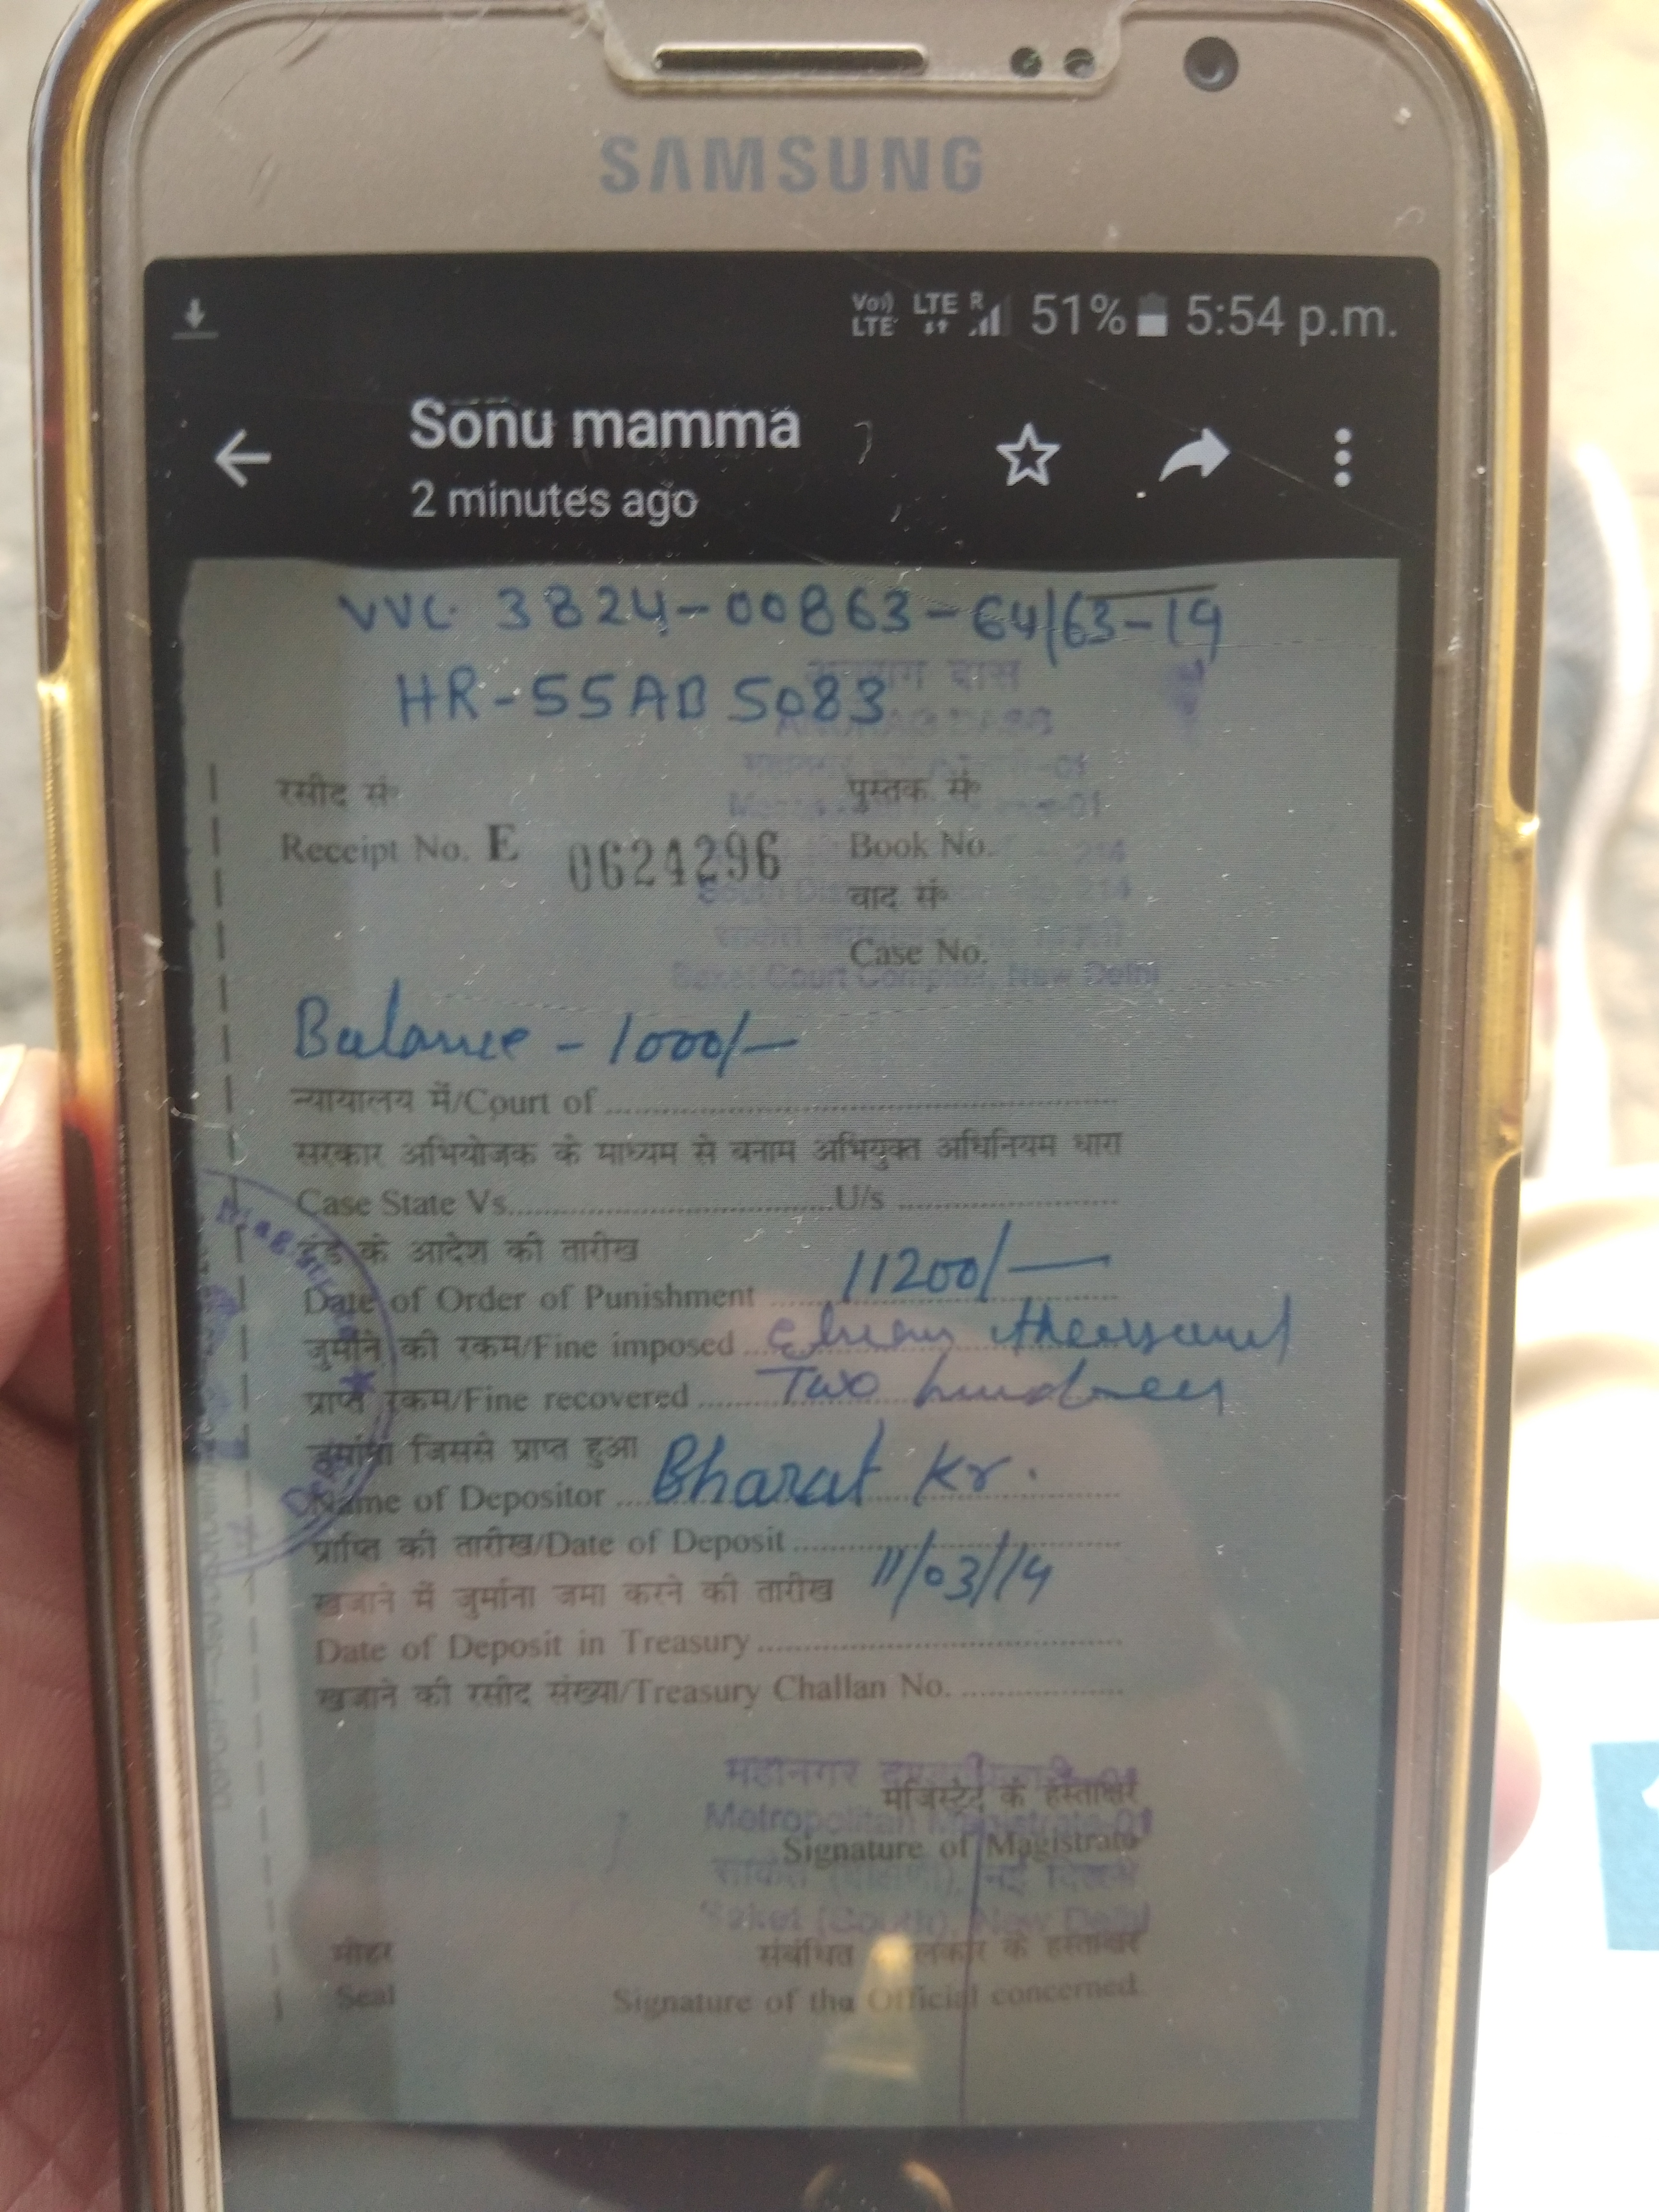 SAMSUNG
Voi) LTE LTE R 51% 5:54 p.m.
Sonu mamma
2 minutes ago
VVC 3824-00863-64/63-19
HR-55AB 5083
रसीद सं॰ पुस्तक सं॰
Receipt No. E 0624296 Book No.
वाद सं॰
Case No.
Saket Court Complex, New Delhi
Balance - 1000/-
न्यायालय में/Court of
सरकार अभियोजक के माध्यम से बनाम अभियुक्त अधिनियम धारा
Case State Vs. U/s
दंड के आदेश की तारीख
Date of Order of Punishment 11200/-
जुर्माने की रकम/Fine imposed thousand
प्राप्त रकम/Fine recovered Two hundred
जुर्माना जिससे प्राप्त हुआ
Name of Depositor Bharat Kr.
प्राप्ति की तारीख/Date of Deposit
खजाने में जुर्माना जमा करने की तारीख 11/03/19
Date of Deposit in Treasury
खजाने की रसीद संख्या/Treasury Challan No.
महानगर
मजिस्ट्रेट के हस्ताक्षर
Metropolitan Magistrate-01
Signature of Magistrate
Saket (South), New Delhi
मोहर संबंधित के हस्ताक्षर
Seal Signature of the Official concerned.